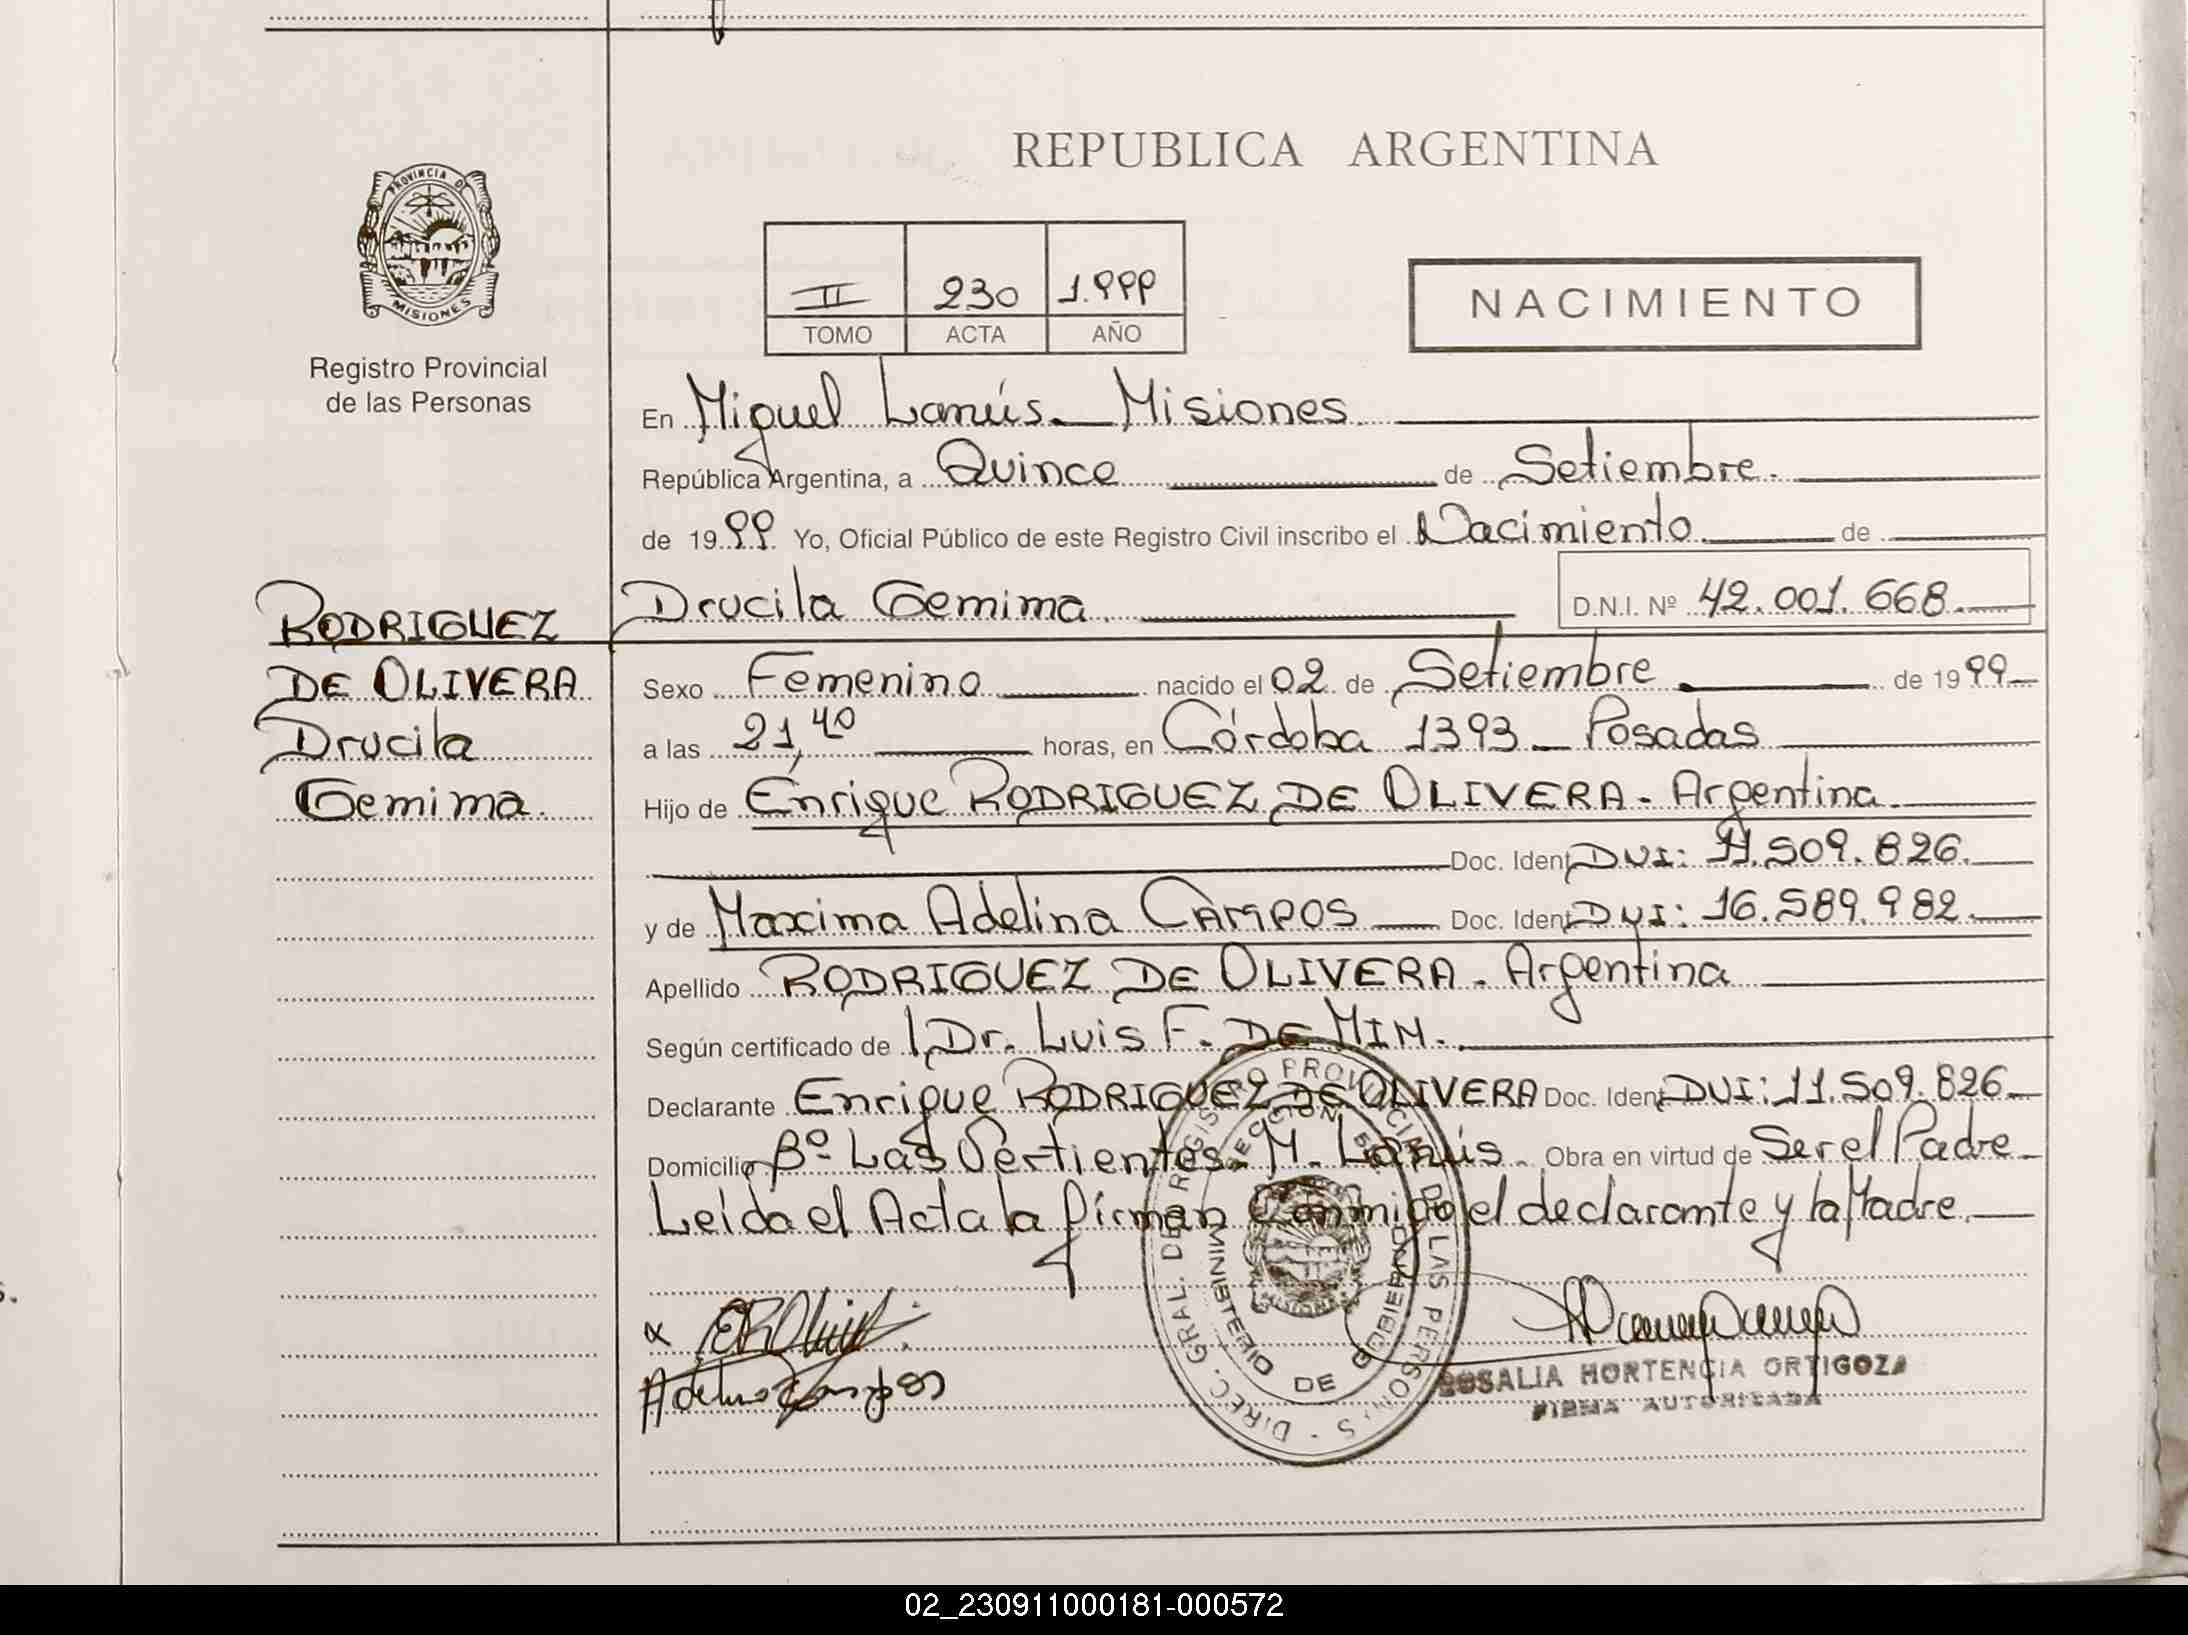 PROVINCIA DE
MISIONES
Registro Provincial
de las Personas
REPUBLICA ARGENTINA
II 230 1.999
TOMO ACTA AÑO
NACIMIENTO
En Miguel Lanús. Misiones
República Argentina, a Quince de Setiembre.
de 1999 Yo, Oficial Público de este Registro Civil inscribo el Nacimiento de
Drucila Gemima. D.N.I. Nº 42.001.668
RODRIGUEZ
DE OLIVERA
Drucila
Gemima.
Sexo Femenino nacido el 02 de Setiembre de 1999
a las 21,40 horas, en Córdoba 1393 - Posadas
Hijo de Enrique RODRIGUEZ DE OLIVERA. Argentina.
Doc. Ident DNI: 11.509.826.
y de Maxima Adelina CAMPOS Doc. Ident DNI: 16.589.982.
Apellido RODRIGUEZ DE OLIVERA. Argentina
Según certificado de Dr. Luis F. DE MIM.
Declarante Enrique RODRIGUEZ DE OLIVERA Doc. Ident DNI: 11.509.826
Domicilio Bº Las Vertientes. M. Lanús. Obra en virtud de Ser el Padre
Leída el Acta la firman Conmigo el declarante y la Madre.
DIREC. GRAL. DEL REGISTRO PROVINCIAL DE LAS PERSONAS
MINISTERIO DE GOBIERNO
MISIONES
ROSALIA HORTENCIA ORTIGOZA
FIRMA AUTORIZADA
02_230911000181-000572